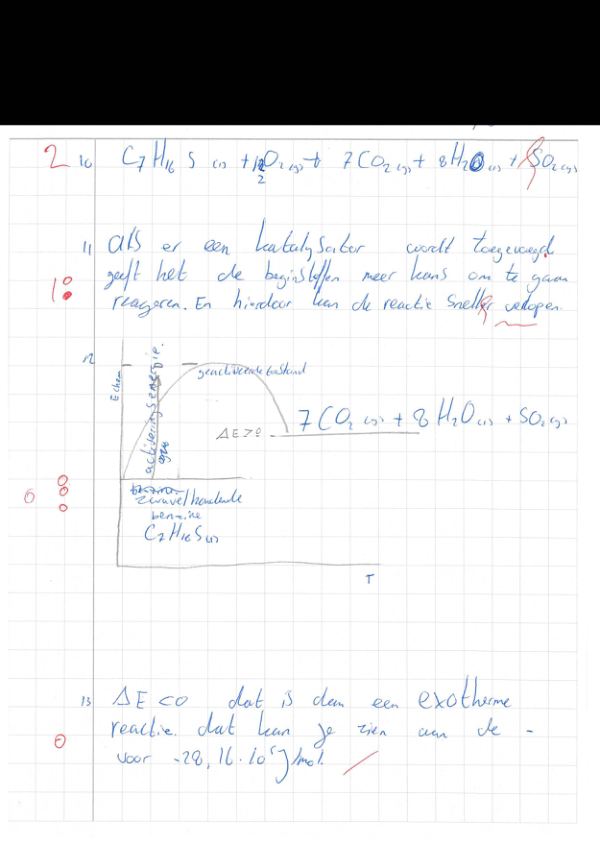 2 10 C7H16S (l) + 12 O2 (g) → 7CO2 (g) + 8H2O (l) + SO2 (g)
2
11 als er een katalysator wordt toegevoegd
geeft het de beginstoffen meer kans om te gaan
1 reageren. En hierdoor kan de reactie sneller verlopen.
12
Echem
activeringsenergie.
geactiveerde toestand
7CO2 (g) + 8H2O (l) + SO2 (g)
ΔE>0
0
zwavelhoudende
benzine
C7H16S (l)
T
13 ΔE<0 dat is dan een exotherme
reactie. dat kan je zien aan de -
0
voor -28,16·10⁵J/mol.